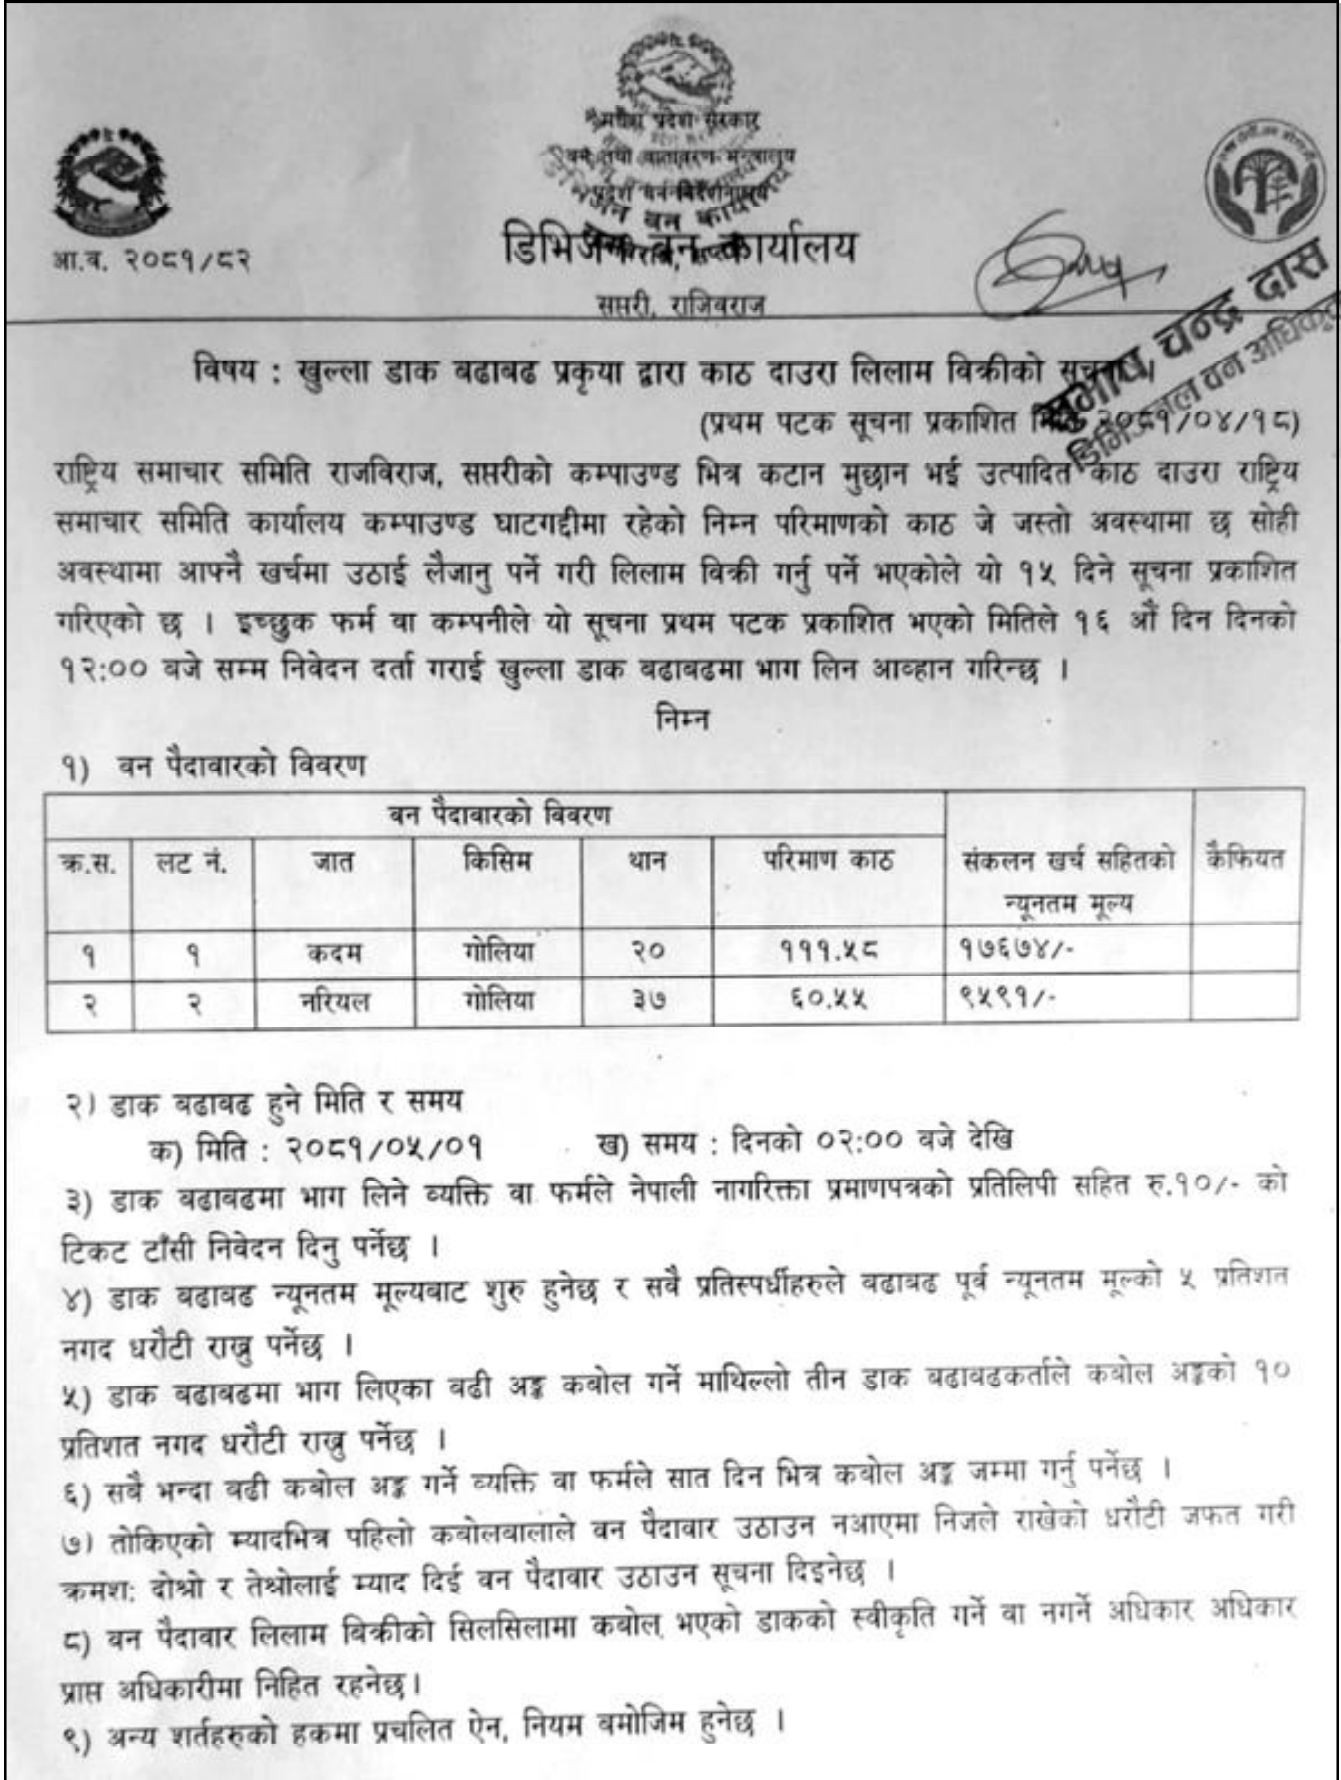 मधेश प्रदेश सरकार
वन तथा वातावरण मन्त्रालय
प्रदेश वन निर्देशनालय
डिभिजन वन कार्यालय
सप्तरी, राजिवराज
आ.व. २०८१/८२
सुभाष चन्द्र दास
डिभिजनल वन अधिकृत
विषय : खुल्ला डाक बढाबढ प्रकृया द्वारा काठ दाउरा लिलाम विक्रीको सूचना ।
(प्रथम पटक सूचना प्रकाशित मिति २०८१/०४/१८)
राष्ट्रिय समाचार समिति राजविराज, सप्तरीको कम्पाउण्ड भित्र कटान मुछान भई उत्पादित काठ दाउरा राष्ट्रिय
समाचार समिति कार्यालय कम्पाउण्ड घाटगद्दीमा रहेको निम्न परिमाणको काठ जे जस्तो अवस्थामा छ सोही
अवस्थामा आफ्नै खर्चमा उठाई लैजानु पर्ने गरी लिलाम विक्री गर्नु पर्ने भएकोले यो १५ दिने सूचना प्रकाशित
गरिएको छ । इच्छुक फर्म वा कम्पनीले यो सूचना प्रथम पटक प्रकाशित भएको मितिले १६ औं दिन दिनको
१२:०० बजे सम्म निवेदन दर्ता गराई खुल्ला डाक बढाबढमा भाग लिन आव्हान गरिन्छ ।
निम्न
१) वन पैदावारको विवरण
वन पैदावारको विवरण
क्र.स. लट नं. जात किसिम थान परिमाण काठ संकलन खर्च सहितको कैफियत
न्यूनतम मूल्य
१ १ कदम गोलिया २० १११.५८ १७६७४/-
२ २ नरियल गोलिया ३७ ६०.५५ ९५९१/-
२) डाक बढाबढ हुने मिति र समय
क) मिति : २०८१/०५/०१ ख) समय : दिनको ०२:०० बजे देखि
३) डाक बढाबढमा भाग लिने व्यक्ति वा फर्मले नेपाली नागरिक्ता प्रमाणपत्रको प्रतिलिपी सहित रु.१०/- को
टिकट टाँसी निवेदन दिनु पर्नेछ ।
४) डाक बढाबढ न्यूनतम मूल्यबाट शुरु हुनेछ र सबै प्रतिस्पर्धीहरुले बढाबढ पूर्व न्यूनतम मूल्को ५ प्रतिशत
नगद धरौटी राख्नु पर्नेछ ।
५) डाक बढाबढमा भाग लिएका बढी अङ्क कबोल गर्ने माथिल्लो तीन डाक बढाबढकर्ताले कबोल अङ्कको १०
प्रतिशत नगद धरौटी राख्नु पर्नेछ ।
६) सबै भन्दा बढी कबोल अङ्क गर्ने व्यक्ति वा फर्मले सात दिन भित्र कबोल अङ्क जम्मा गर्नु पर्नेछ ।
७) तोकिएको म्यादभित्र पहिलो कबोलवालाले वन पैदावार उठाउन नआएमा निजले राखेको धरौटी जफत गरी
क्रमश: दोश्रो र तेश्रोलाई म्याद दिई वन पैदावार उठाउन सूचना दिइनेछ ।
८) वन पैदावार लिलाम बिक्रीको सिलसिलामा कबोल भएको डाकको स्वीकृति गर्ने वा नगर्ने अधिकार अधिकार
प्राप्त अधिकारीमा निहित रहनेछ।
९) अन्य शर्तहरुको हकमा प्रचलित ऐन, नियम बमोजिम हुनेछ ।